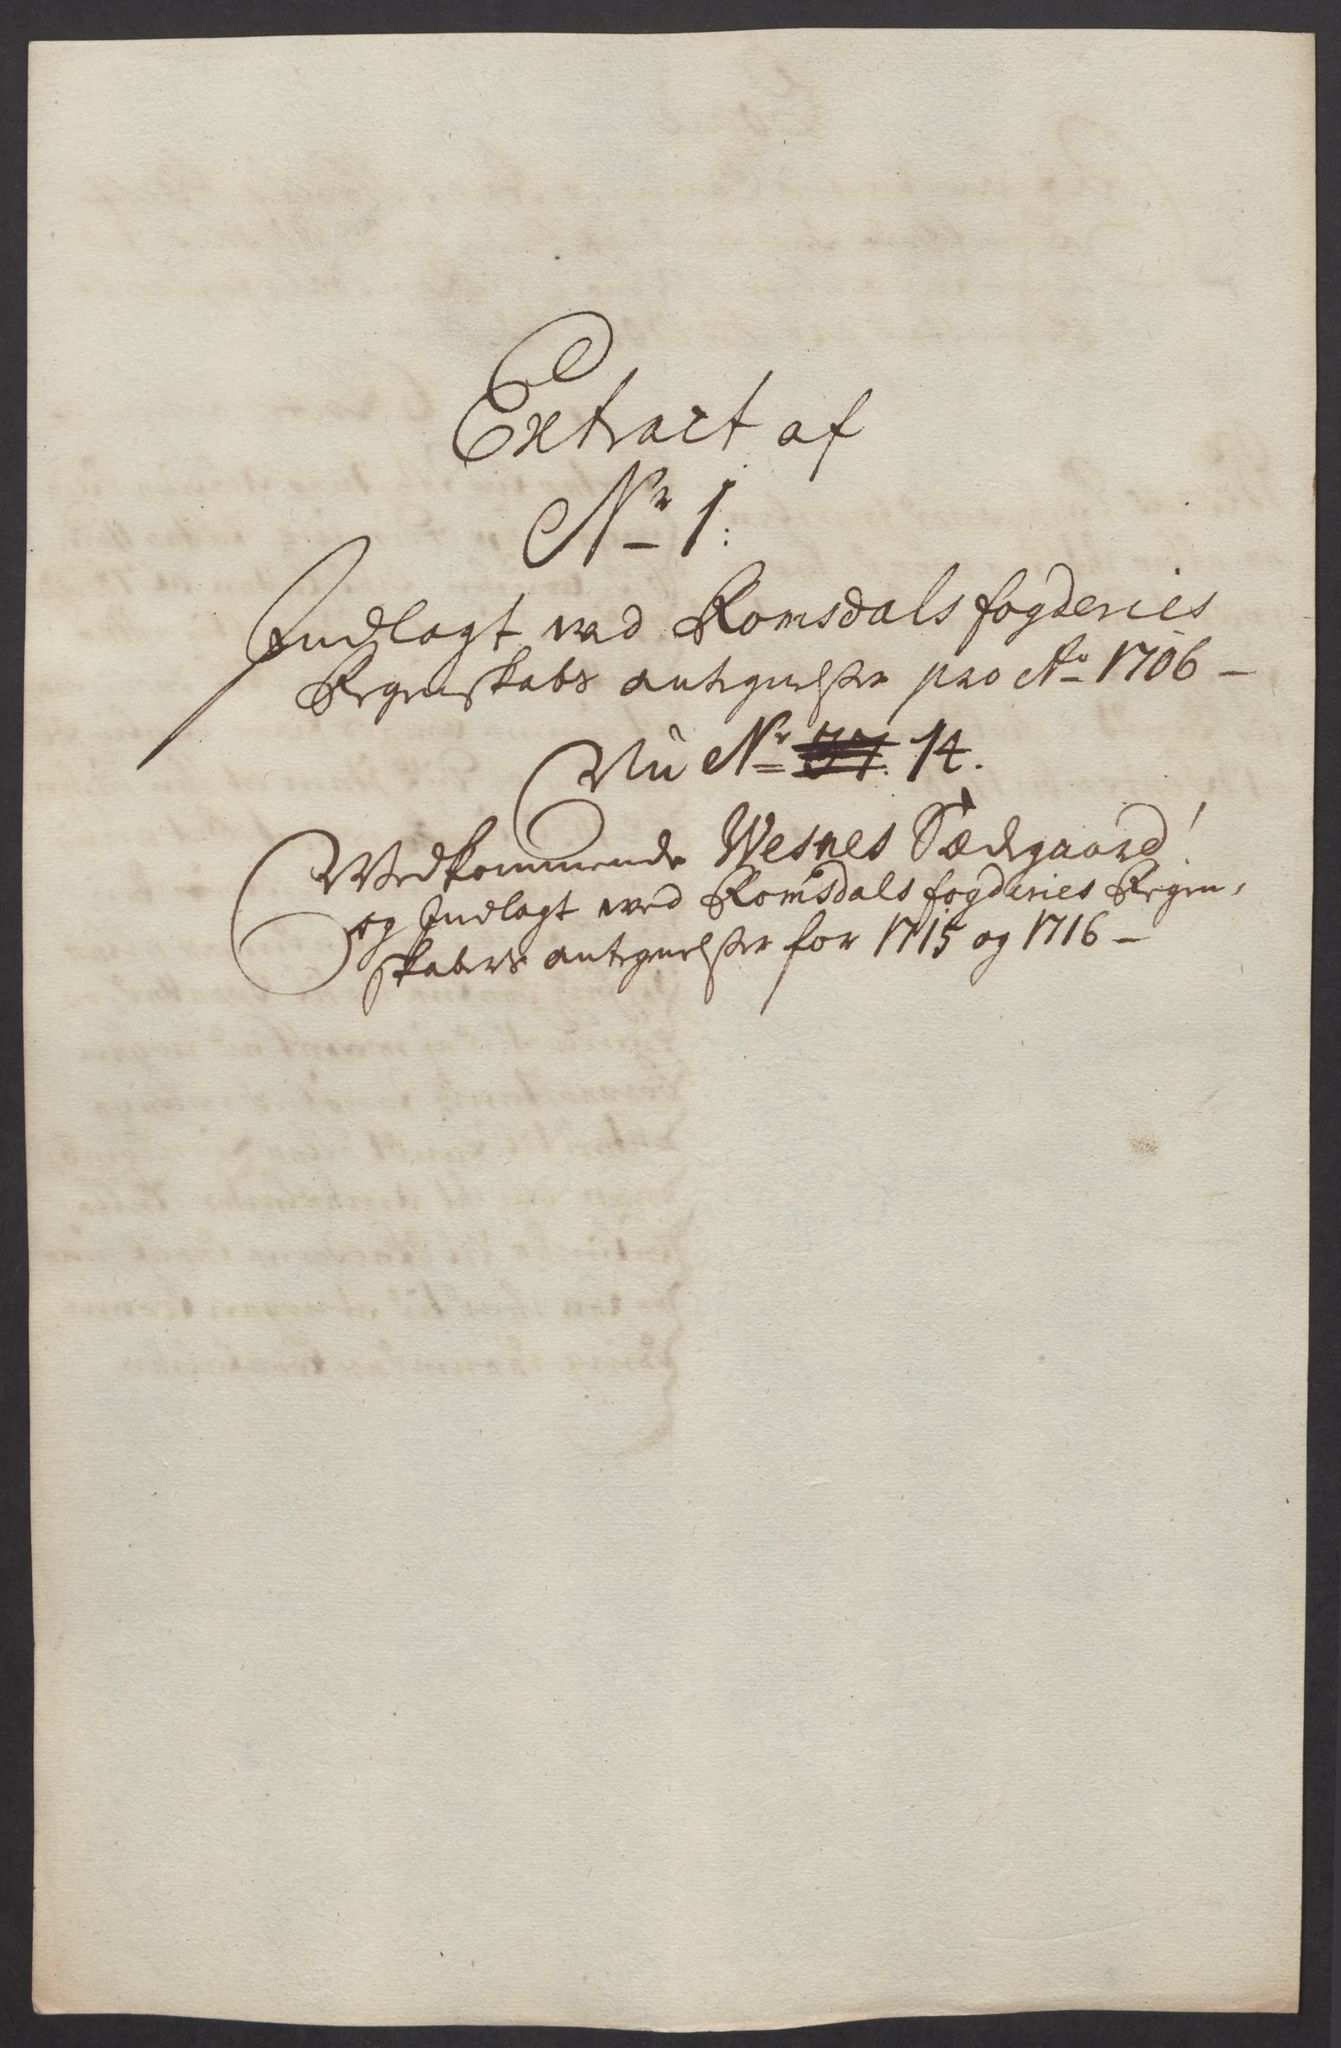 Extract af
Nr 1.
Indlagt ved Romsdals fogderies
Regenskabs antegnelser pro Ao 1706 –
Nu Nr 37. 14.
Vedkommende Wesnes Sædegaard!
og Indlagt ved Romsdals fogderies Regen,
skabers antegnelser for 1715 og 1716 –